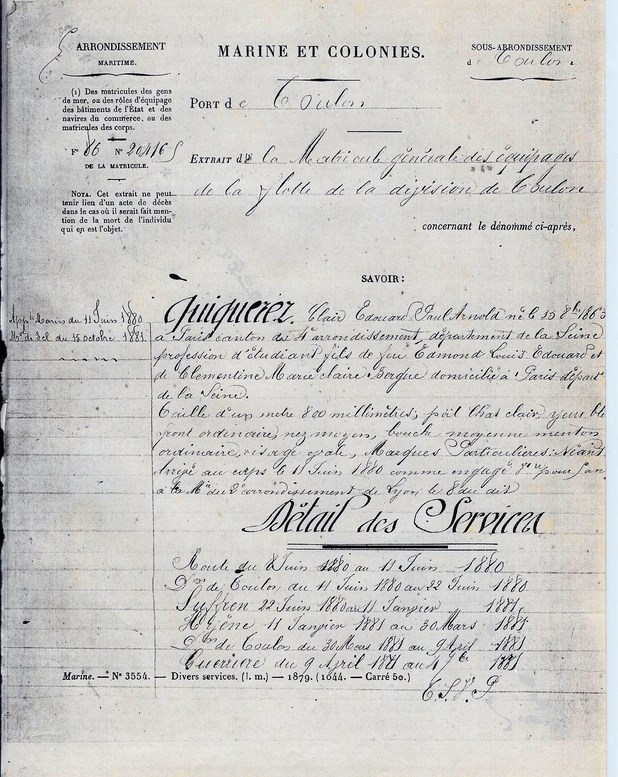 ARRONDISSEMENT
MARITIME.
MARINE ET COLONIES.
SOUS-ARRONDISSEMENT
de Toulon
(1) Des matricules des gens
de mer, ou des rôles d'équipage
des bâtiments de l'État et des
navires du commerce, ou des
matricules des corps.
PORT de Toulon
F° 86 N° 20416
DE LA MATRICULE.
EXTRAIT de la Matricule générale des équipages
de la flotte de la division de Toulon
NOTA. Cet extrait ne peut
tenir lieu d'un acte de décès
dans le cas où il serait fait men-
tion de la mort de l'individu
qui en est l'objet.
concernant le dénommé ci-après,
SAVOIR :
App. Marin du 11 Juin 1880
du 15 octobre 1881.
Quiquerez. Clair Edouard Paul Arnold né le 15 8bre 1863
à Paris canton du 4e arrondissement, département de la Seine
profession d'étudiant fils de feu Edmond Louis Edouard et
de Clémentine Marie Claire Bergue domicilié à Paris départ
de la Seine.
Taille d'un mètre 800 millimètres; poil chat clair, yeux
front ordinaire, nez moyen, bouche moyenne menton
ordinaire, visage ovale, Marques Particulières: Néant
Arrivé au corps le 11 Juin 1880 comme engagé pour 5 ans
à la Mie du 2e arrondissement de Lyon le 8 du dit
Détail des Services
Route du 8 Juin 1880 au 11 Juin 1880
Don de Toulon du 11 Juin 1880 au 22 Juin 1880
Suffren 22 Juin 1880 au 11 Janvier 1881,
11 Janvier 1881 au 30 Mars 1881
Don de Toulon du 30 Mars 1881 au 9 Avril 1881
Guerrière du 9 Avril 1881 au 1881
Marine. — N° 3554. — Divers services. (l. m.) — 1879. (1644. — Carré 50.)
T. S. V. P.